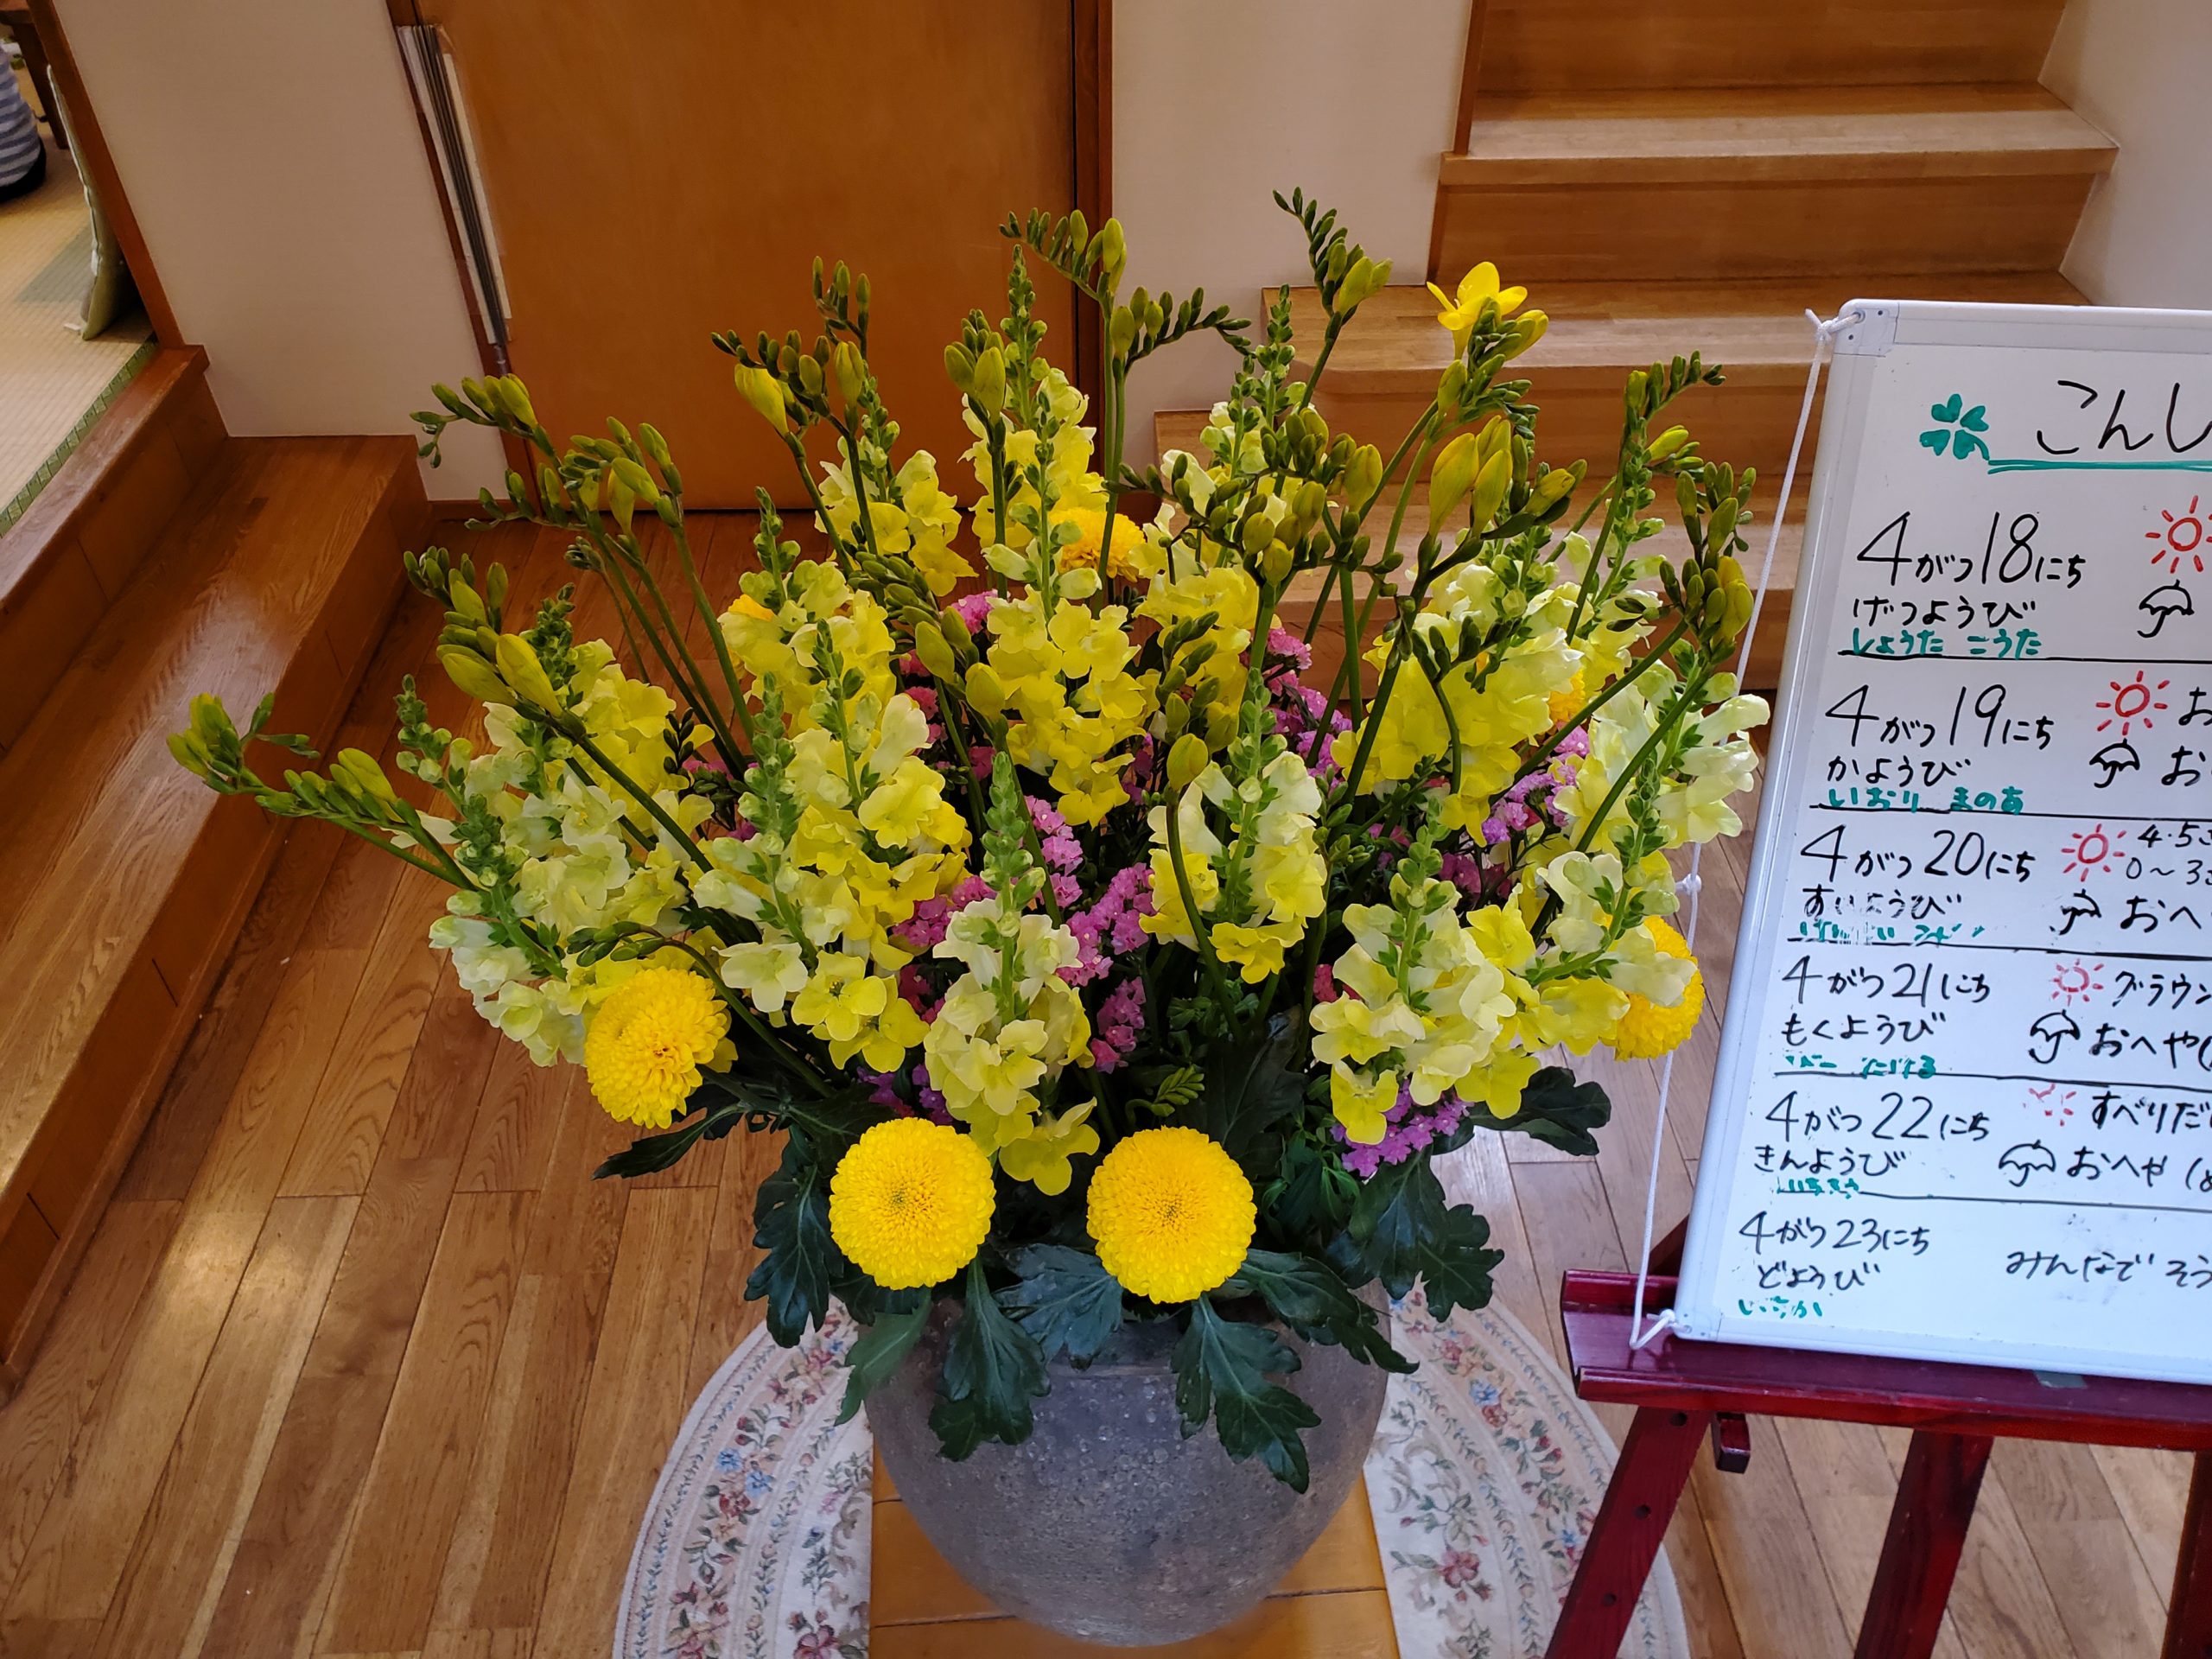 こんし
4がつ18にち
げつようび
しょうた こうた
4がつ19にち お
かようび お
いおり まのあ
4がつ20にち 4・5さ
0〜3さ
すいようび おへ
4がつ21にち グラウン
もくようび おへや(
4がつ22にち すべりだ
きんようび おへや(
4がつ23にち みんなで そう
どようび